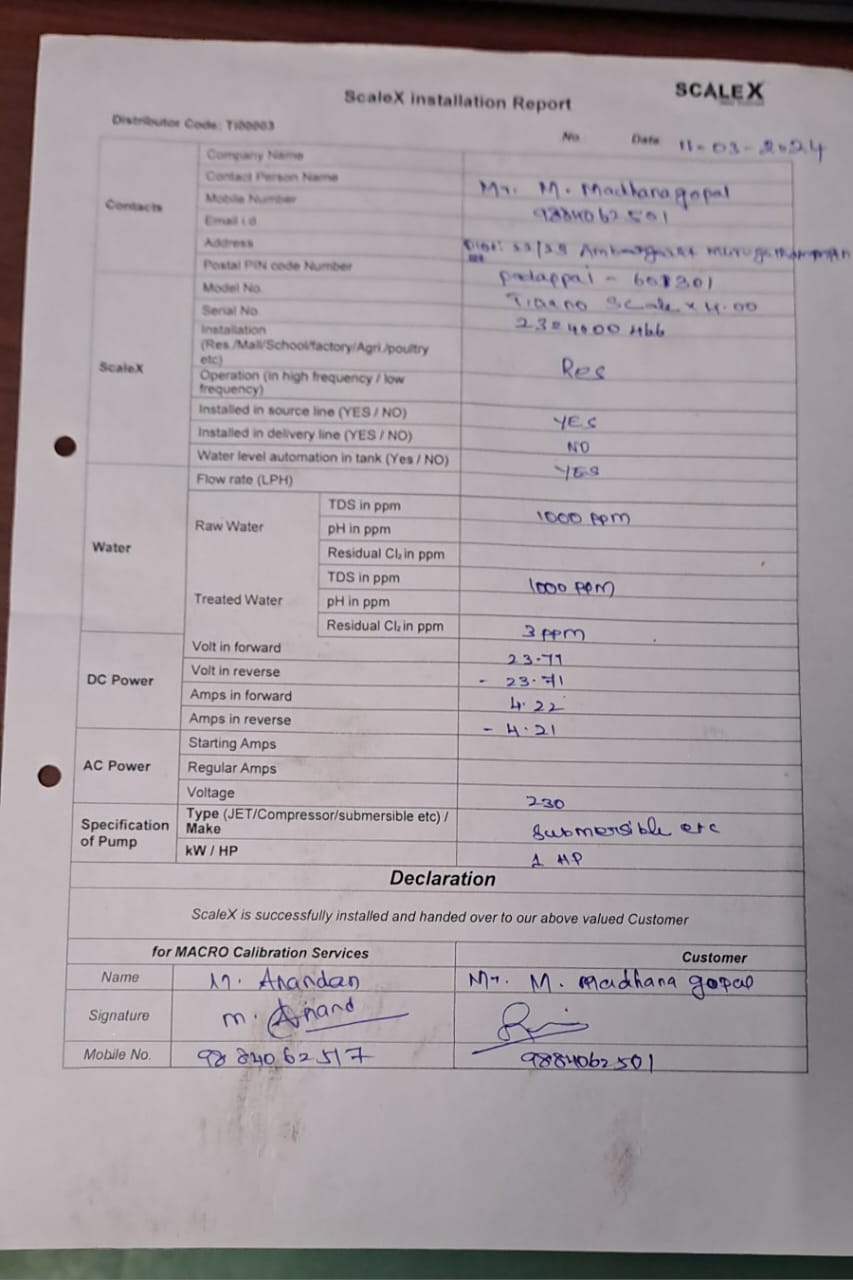 SCALEX
ScaleX installation Report
Distributor Code: TI00003
No Date 11-03-2024
Contacts
Company Name
Contact Person Name Mr. M. Madhanagopal
Mobile Number 9884062501
Email i.d
Address
Postal PIN code Number padappai - 601301
ScaleX
Model No. Scale x 4.00
Serial No.
Installation (Res./Mall/School/factory/Agri./poultry etc) Res
Operation (in high frequency / low frequency)
Installed in source line (YES / NO) YES
Installed in delivery line (YES / NO) NO
Water level automation in tank (Yes / NO) YES
Water
Flow rate (LPH)
Raw Water
TDS in ppm 1000 ppm
pH in ppm
Residual Cl₂ in ppm
Treated Water
TDS in ppm 1000 ppm
pH in ppm
Residual Cl₂ in ppm 3 ppm
DC Power
Volt in forward 23.71
Volt in reverse - 23.71
Amps in forward 4.22
Amps in reverse - 4.21
AC Power
Starting Amps
Regular Amps
Voltage 230
Specification of Pump
Type (JET/Compressor/submersible etc) / Make Submersible etc
kW / HP 1 HP
Declaration
ScaleX is successfully installed and handed over to our above valued Customer
for MACRO Calibration Services Customer
Name M. Anandan Mr. M. Madhana gopal
Signature M. Anand
Mobile No. 9884062517 9884062501